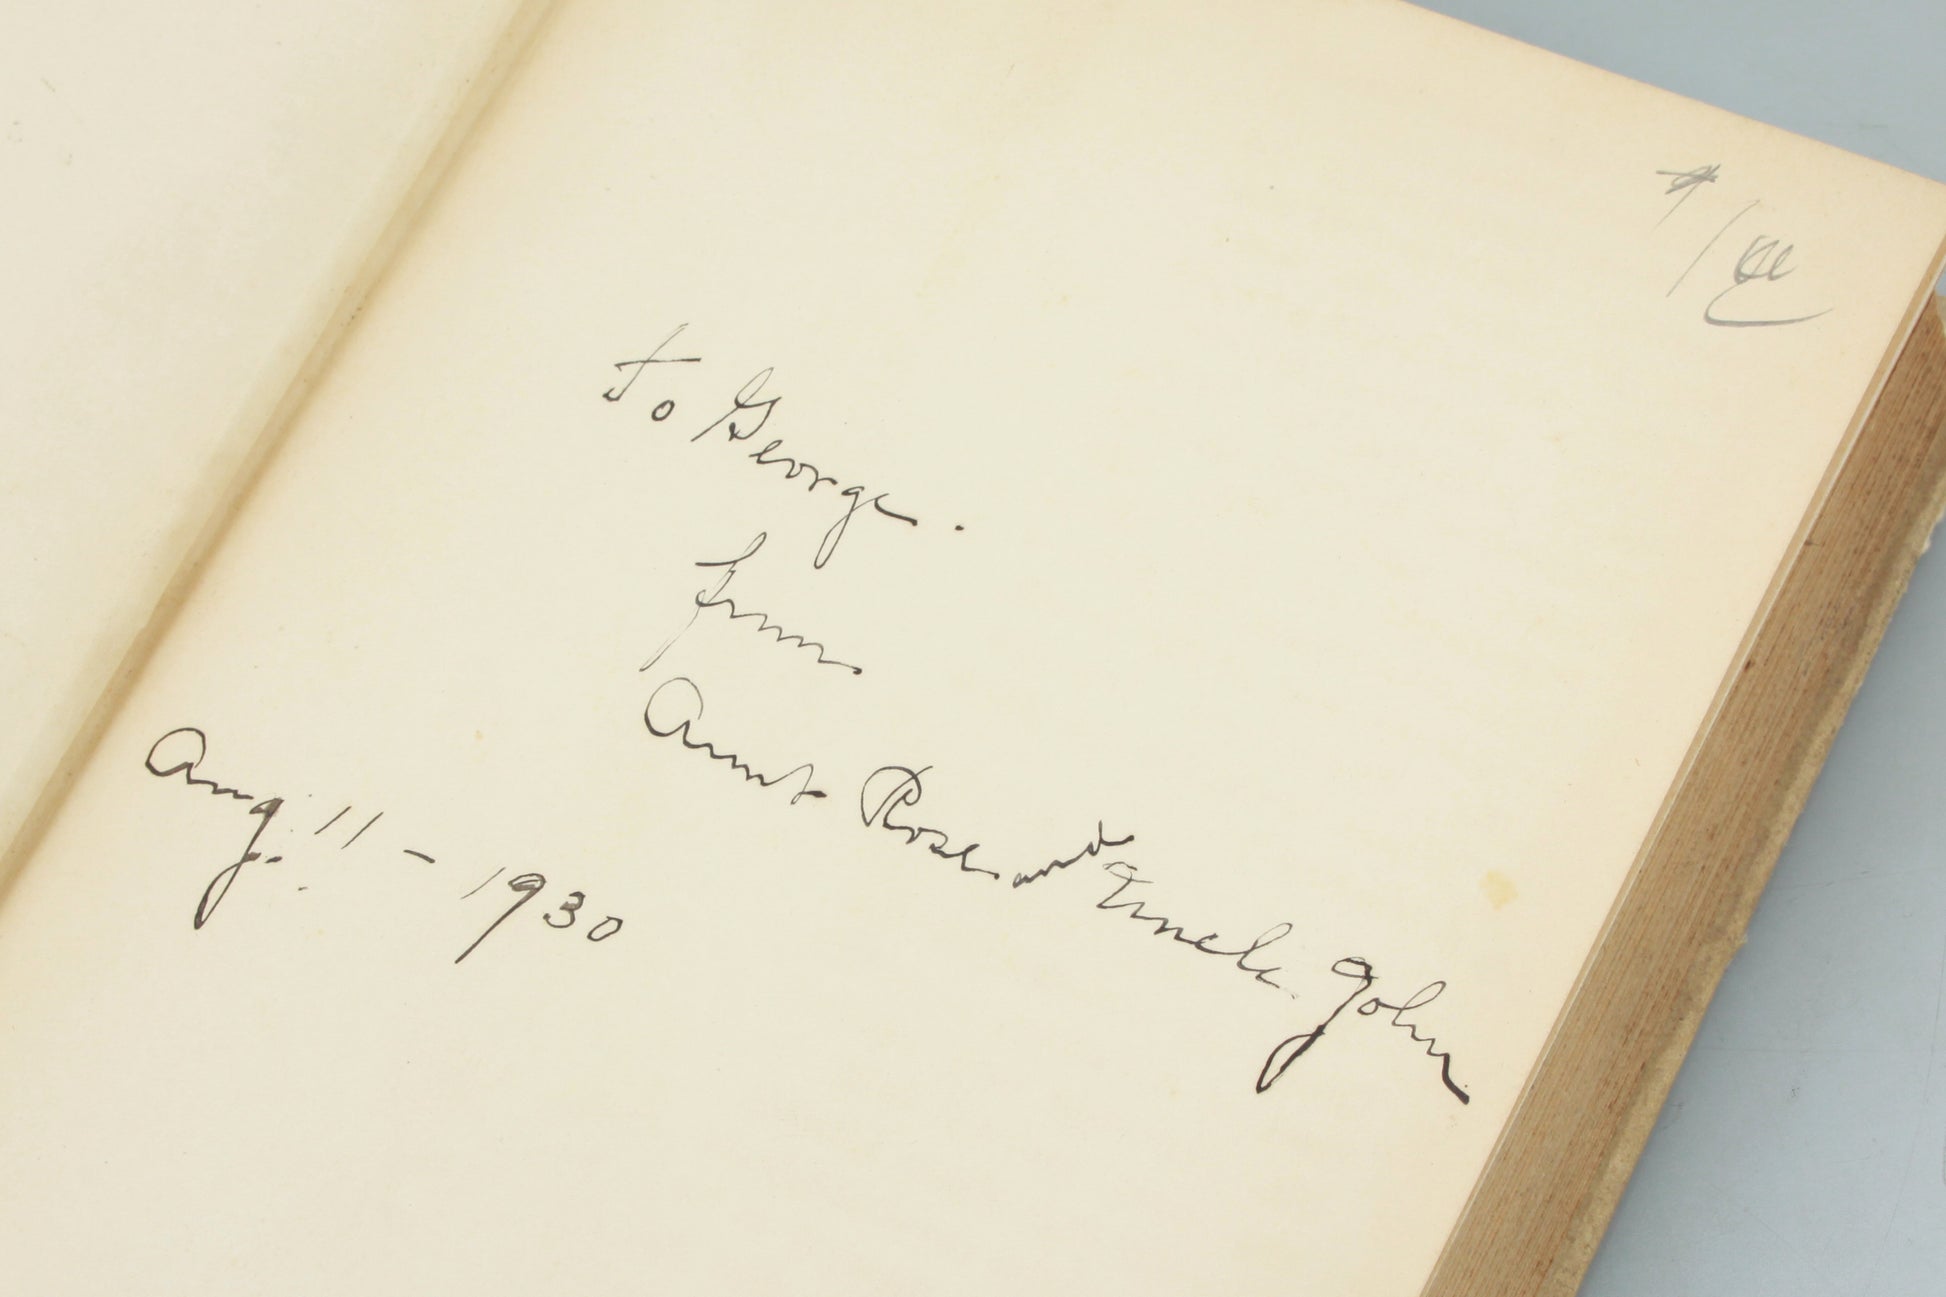 $1.00
To George.
from
Aunt Rose and Uncle John
Aug. 11 - 1930